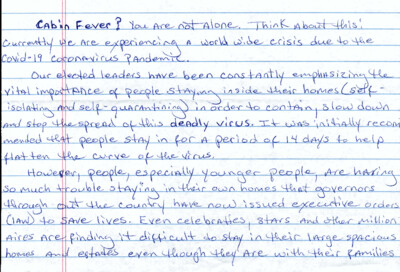 Cabin Fever? You are not alone. Think About this!
Currently we are experiencing a world wide crisis due to the
Covid-19 coronavirus pandemic.
Our elected leaders have been constantly emphasizing the
vital importance of people staying inside their homes (self-
isolating and self-quarantining) in order to contain, slow down
and stop the spread of this deadly virus. It was initially recom
mended that people stay in for a period of 14 days to help
flatten the curve of the virus.
However, people, especially younger people, are having
so much trouble staying in their own homes that governors
through out the country have now issued executive orders
(law) to save lives. Even celebraties, stars and other million
aires are finding it difficult to stay in their large spacious
homes and estates even though they are with their families